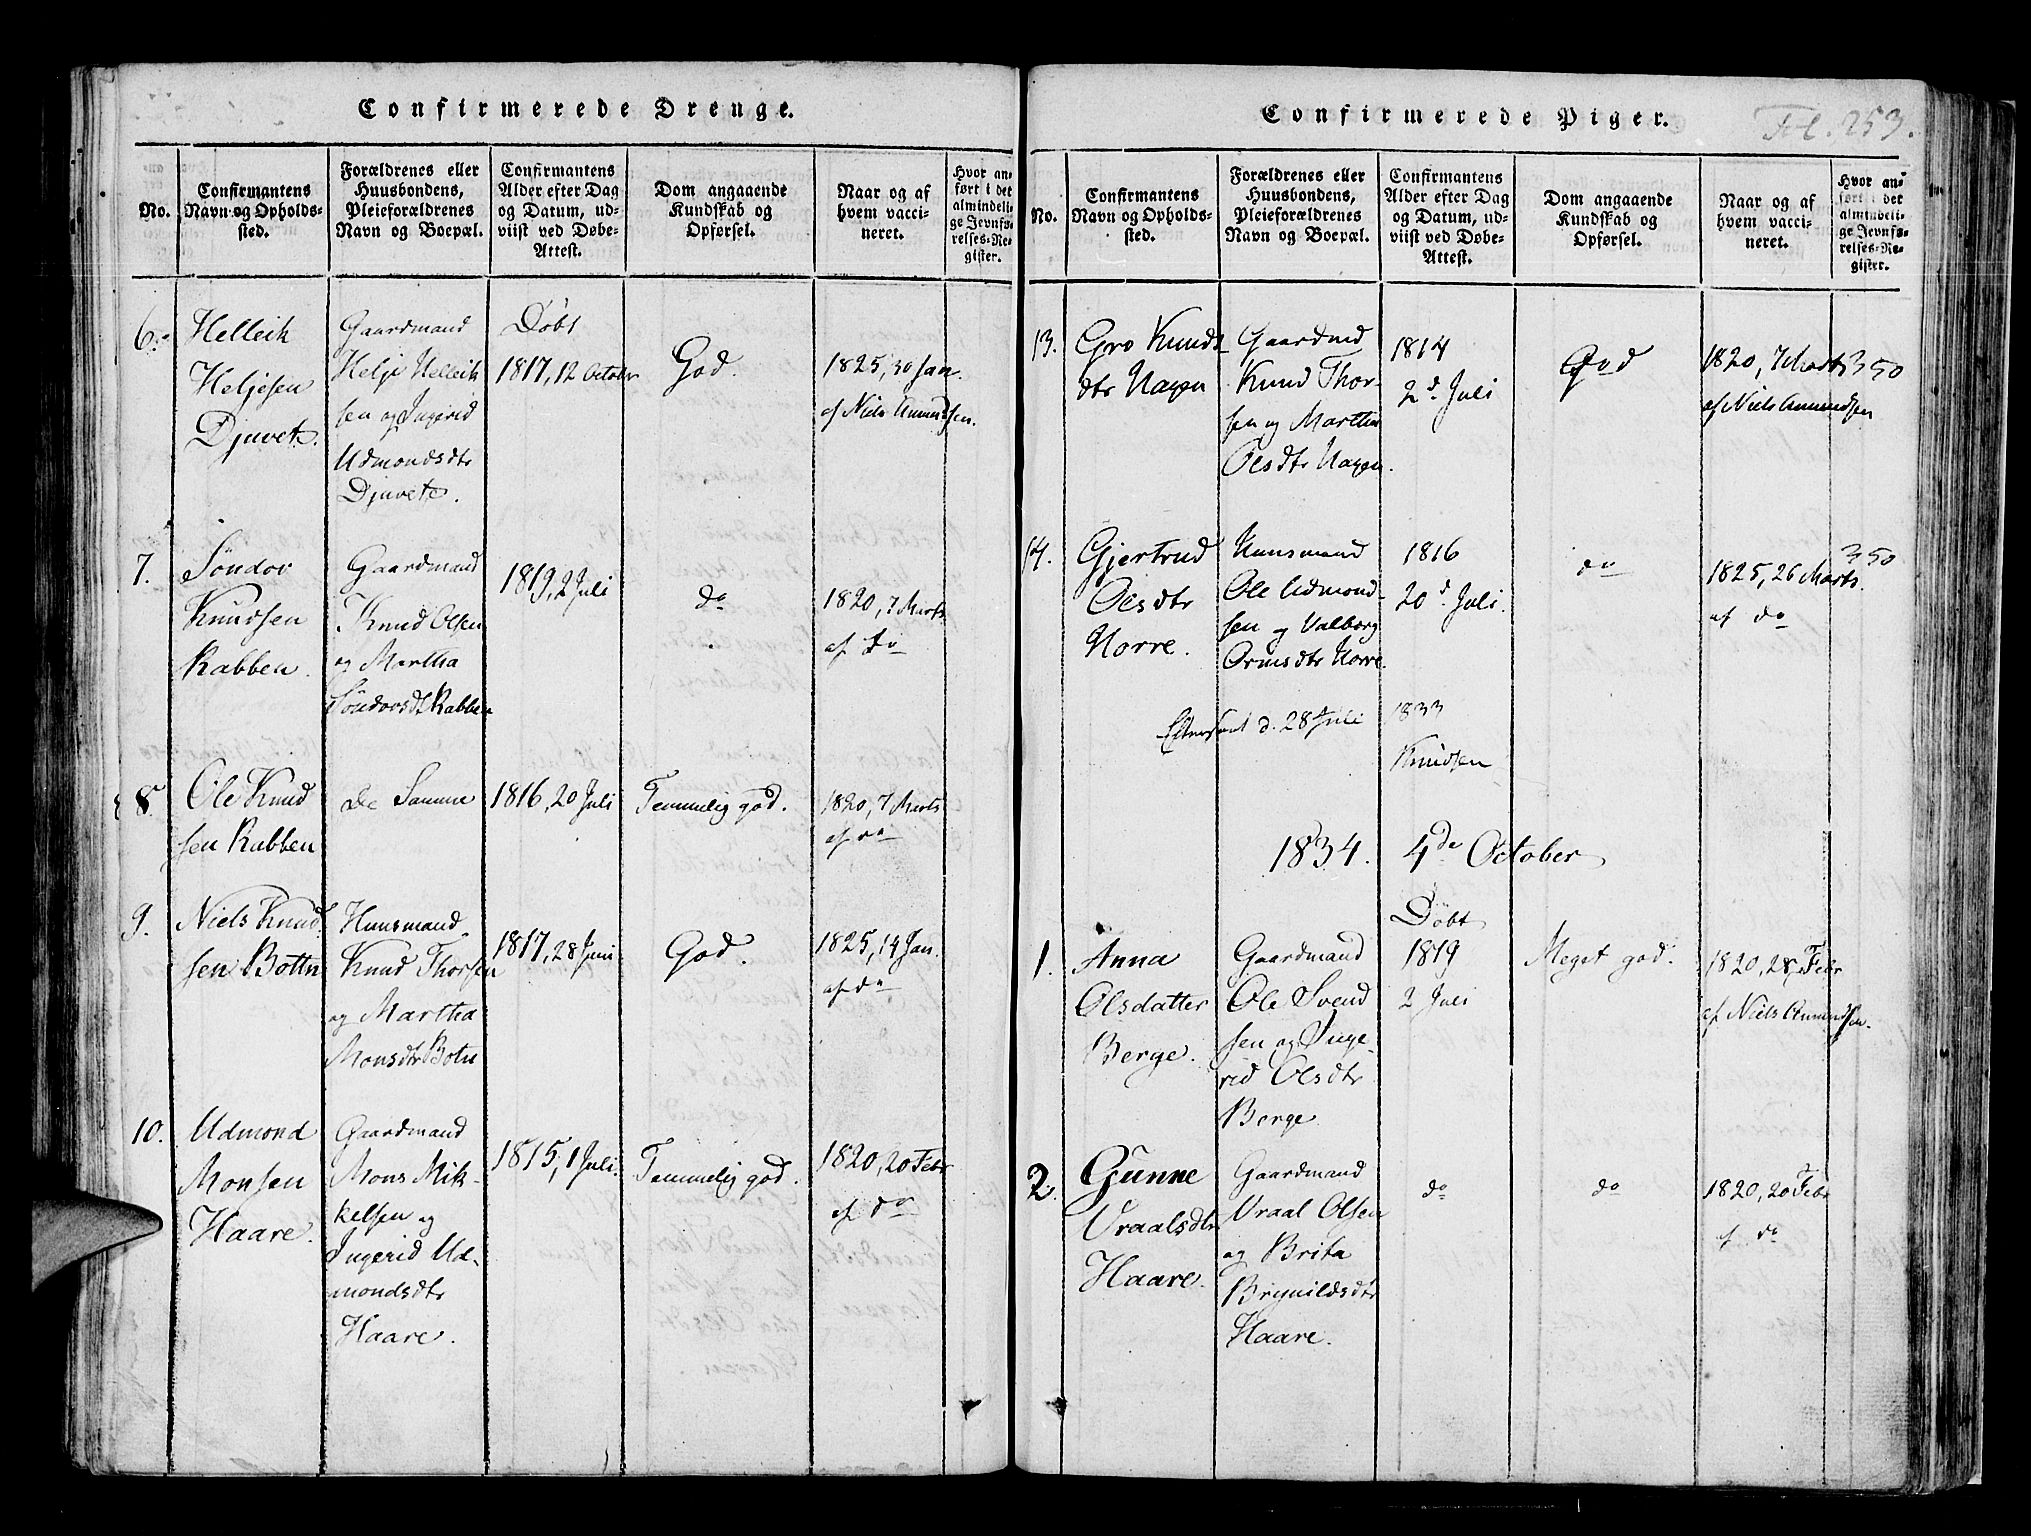 Confirmerede Drenge.
No.
Confirmantens
Navn og Opholds-
sted.
Forældrenes eller
Huusbondens,
Pleieforældrenes
Navn og Boepæl.
Confirmantens
Alder efter Dag
og Datum, ud-
viist ved Døbe-
Attest.
Dom angaaende
Kundskab og
Opførsel.
Naar og af
hvem vacci-
neret.
Hvor an-
ført i det
almindeli-
ge Jevnfø-
relses-Re-
gister.
6.
Helleik
Heljesen
Djuvet.
Gaardmand
Helje Helleik
sen og Ingerid
Udmondsdtr
Djuvet.
Døbt
1817, 12 October
God.
1825, 30 Jan.
af Niels Amundsen.
7.
Söndov
Knudsen
Rabben.
Gaardmand
Knud Olsen
og Martha
Söndovsdt Rabben
1819, 2 Juli
do
1820, 7 Marts
af do
8.
Ole Knud
sen Rabben
De Samme
1816, 20 Juli
Temmelig god.
1820, 7 Marts
af do
9.
Niels Knud
sen Botn
Huusmand
Knud Thorsen
og Martha
Monsdtr Botn
1817, 28 Juni
God.
1825, 14 Jan.
af do
10.
Udmond
Monsen
Haare.
Gaardmand
Mons Mik-
kelsen og
Ingerid Ud-
mondsdtr
Haare.
1815, 1 Juli.
Temmelig god.
1820, 20 Febr
af do
Confirmerede Piger.
Fol. 253.
No.
Confirmantens
Navn og Opholds-
sted.
Forældrenes eller
Huusbondens,
Pleieforældrenes
Navn og Boepæl.
Confirmantens
Alder efter Dag
og Datum, ud-
viist ved Døbe-
Attest.
Dom angaaende
Kundskab og
Opførsel.
Naar og af
hvem vacci-
neret.
Hvor an-
ført i det
almindeli-
ge Jevnfø-
relses-Re-
gister.
13.
Gro Knuds
dtr Hagen
Gaardmd
Knud Thor-
sen og Martha
Olsdtr Hagen.
1814
2d Juli
God
1820, 7 Marts
af Niels Amundsen
350
14.
Gjertrud
Olsdtr
Horre.
Huusmand
Ole Udmond-
sen og Valborg
Ormsdtr Horre.
1816
20d Juli.
do
1825, 26 Marts.
af do
350
d. 28 Juli 1833
Knudsen
1834. 4de October
1.
Anna
Olsdatter
Berge.
Gaardmand
Ole Svend
sen og Inge-
rid Olsdtr
Berge
Döbt
1819
2 Juli
Meget god.
1820, 28 Febr
af Niels Amundsen.
2.
Gunne
Vraalsdtr
Haare.
Gaardmand
Vraal Olsen
og Brita
Brynildsdtr
Haare.
do
do
1820, 20 Febr
af do